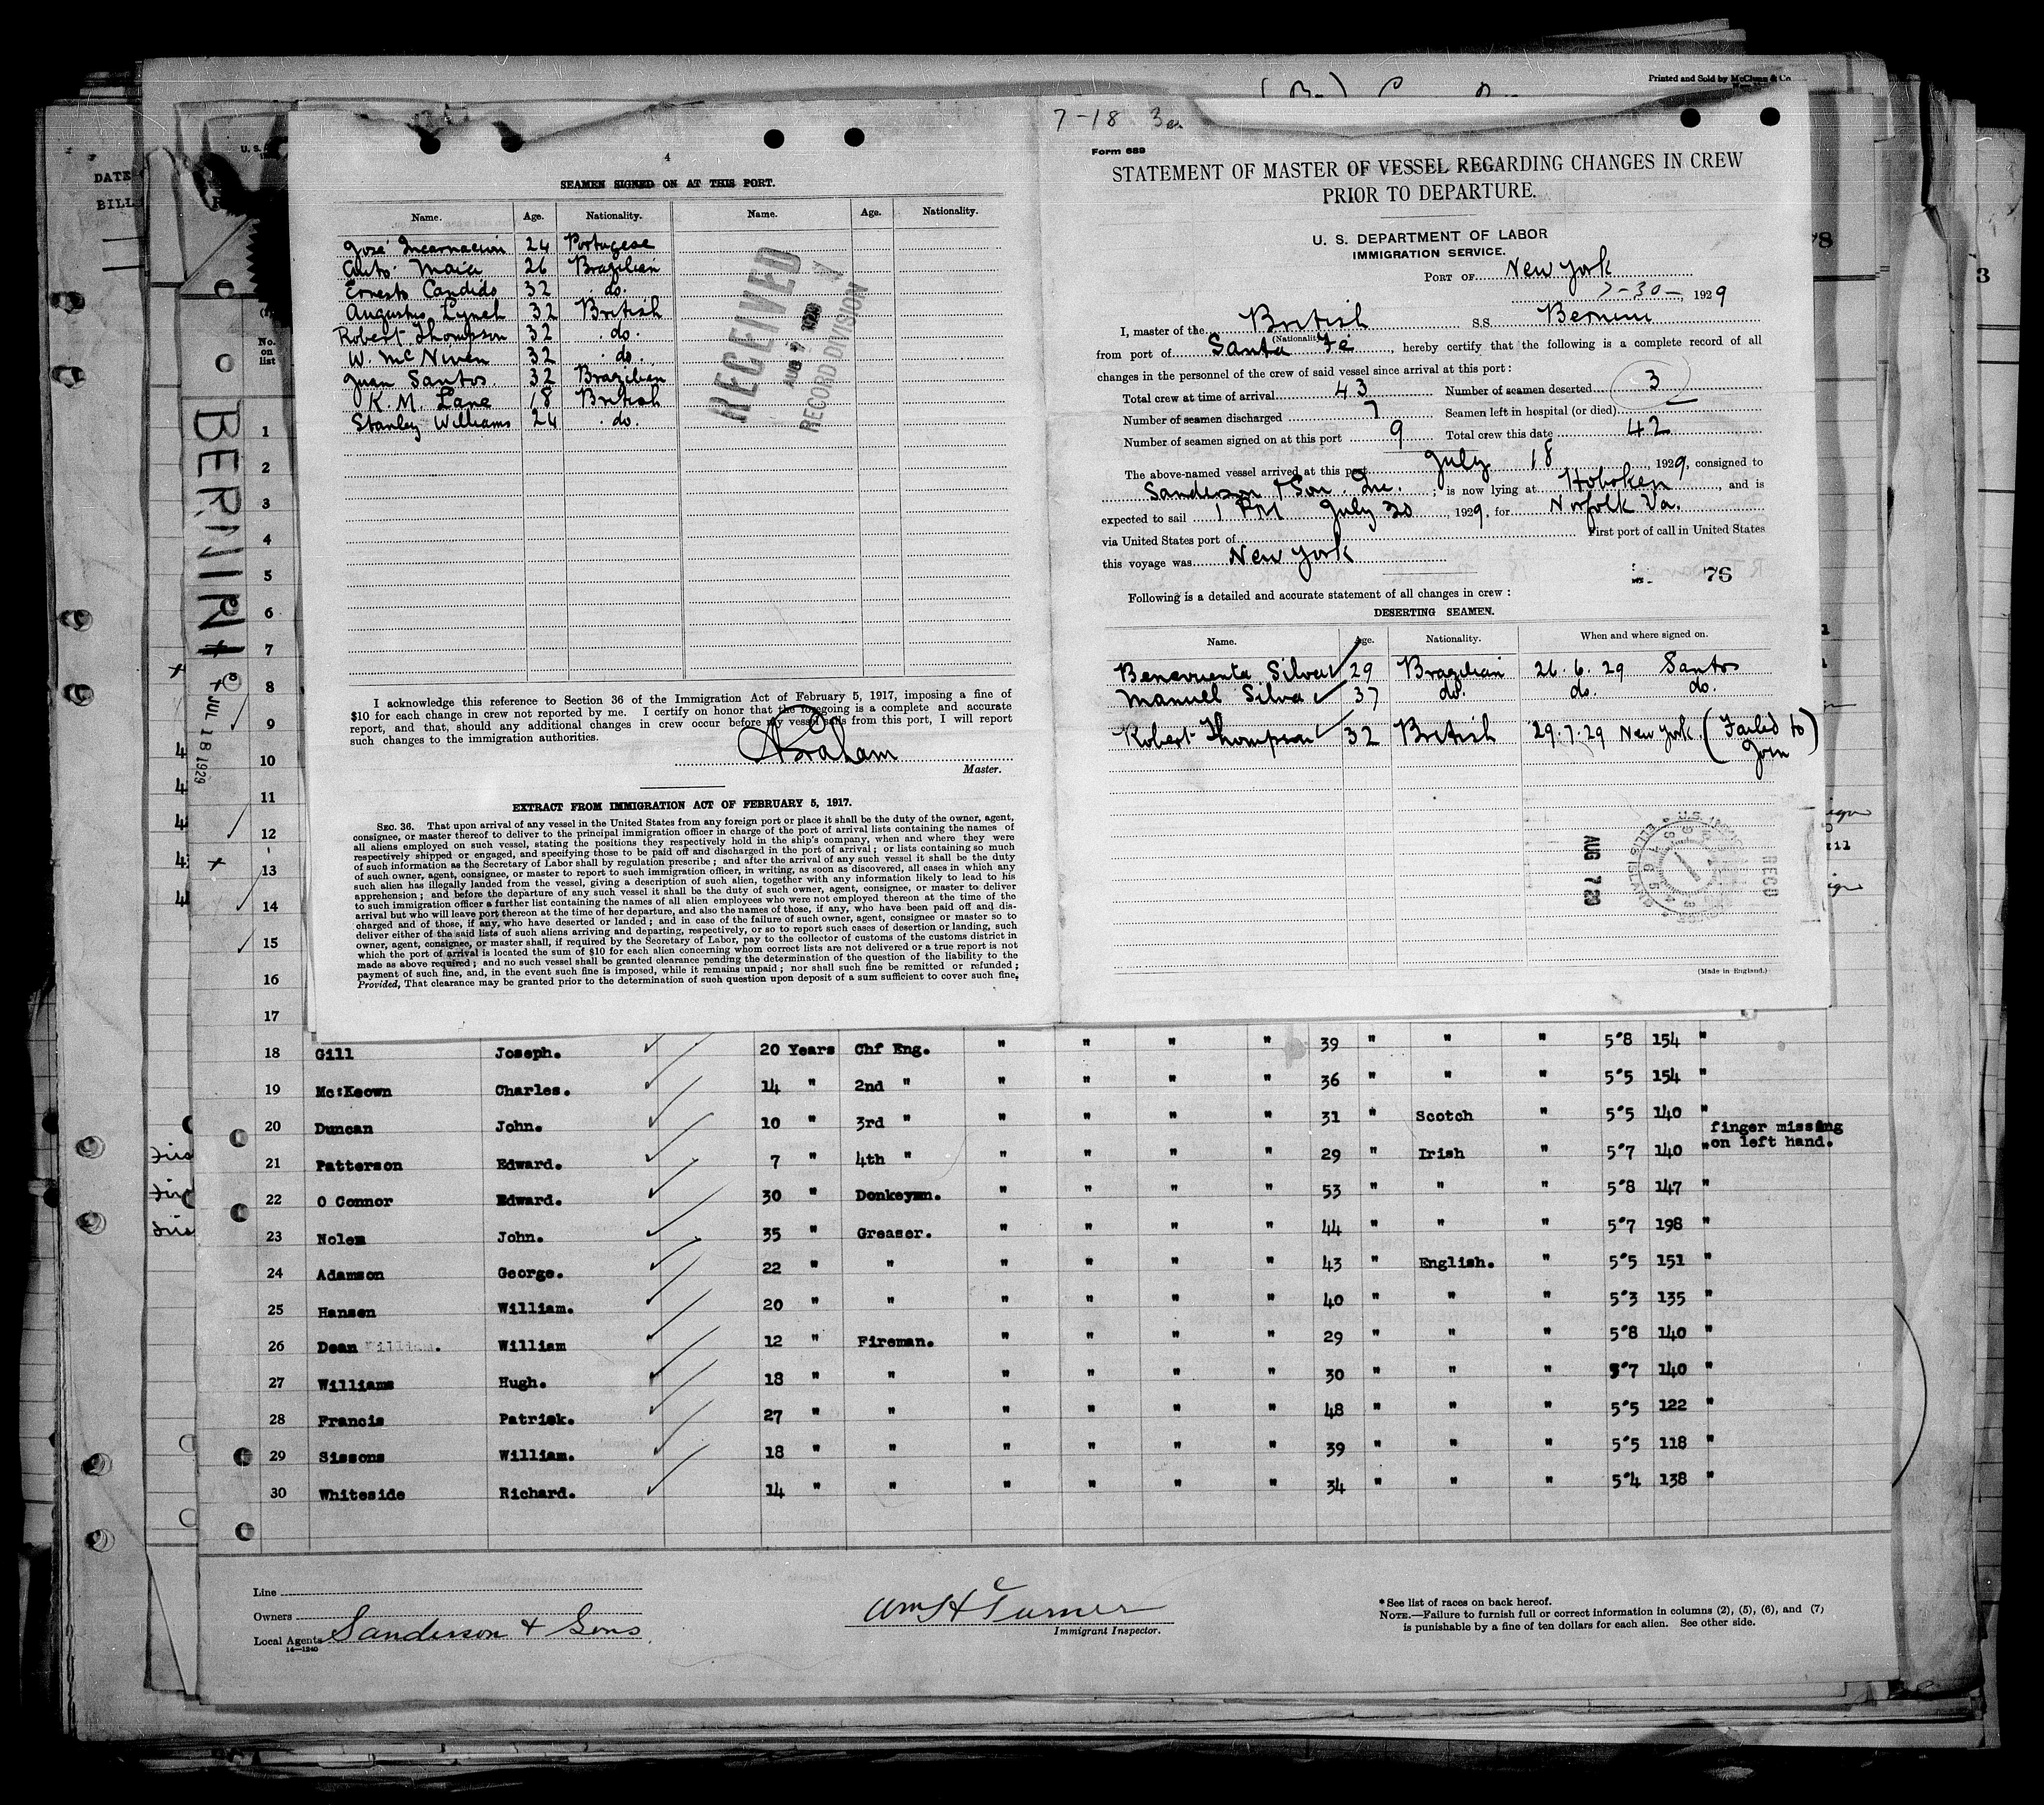 Printed and Sold by McClunn & Co
DATE
BILL
U. S.
4
SEAMEN SIGNED ON AT THIS PORT.
Name. Age. Nationality. Name. Age. Nationality.
José Incarnacion 24 Portugese
Anto. Maia 26 Brazilian
Ernesto Candido 32 do.
Augustus Lynch 32 British
Robert Thompson 32 do.
W. Mc Niven 32 do.
Juan Santos 32 Brazilian
K. M. Lane 18 British
Stanley Williams 24 do.
RECEIVED
AUG 7
RECORD DIVISION
I acknowledge this reference to Section 36 of the Immigration Act of February 5, 1917, imposing a fine of
$10 for each change in crew not reported by me. I certify on honor that the foregoing is a complete and accurate
report, and that, should any additional changes in crew occur before my vessel sails from this port, I will report
such changes to the immigration authorities.
Graham
Master.
EXTRACT FROM IMMIGRATION ACT OF FEBRUARY 5, 1917.
SEC. 36. That upon arrival of any vessel in the United States from any foreign port or place it shall be the duty of the owner, agent,
consignee, or master thereof to deliver to the principal immigration officer in charge of the port of arrival lists containing the names of
all aliens employed on such vessel, stating the positions they respectively hold in the ship's company, when and where they were
respectively shipped or engaged, and specifying those to be paid off and discharged in the port of arrival; or lists containing so much
of such information as the Secretary of Labor shall by regulation prescribe; and after the arrival of any such vessel it shall be the duty
of such owner, agent, consignee, or master to report to such immigration officer, in writing, as soon as discovered, all cases in which any
such alien has illegally landed from the vessel, giving a description of such alien, together with any information likely to lead to his
apprehension; and before the departure of any such vessel it shall be the duty of such owner, agent, consignee, or master to deliver
to such immigration officer a further list containing the names of all alien employees who were not employed thereon at the time of the
arrival but who will leave port thereon at the time of her departure, and also the names of those, if any, who have been paid off and dis-
charged and of those, if any, who have deserted or landed; and in case of the failure of such owner, agent, consignee or master so to
deliver either of the said lists of such aliens arriving and departing, respectively, or so to report such cases of desertion or landing, such
owner, agent, consignee, or master shall, if required by the Secretary of Labor, pay to the collector of customs of the customs district in
which the port of arrival is located the sum of $10 for each alien concerning whom correct lists are not delivered or a true report is not
made as above required; and no such vessel shall be granted clearance pending the determination of the question of the liability to the
payment of such fine, and, in the event such fine is imposed, while it remains unpaid; nor shall such fine be remitted or refunded;
Provided, That clearance may be granted prior to the determination of such question upon deposit of a sum sufficient to cover such fine.
7-18 3
Form 689
STATEMENT OF MASTER OF VESSEL REGARDING CHANGES IN CREW
PRIOR TO DEPARTURE.
U. S. DEPARTMENT OF LABOR
IMMIGRATION SERVICE.
PORT OF New York
7-30-, 1929
I, master of the British S.S. Bernini
(Nationality)
from port of Santa Fé, hereby certify that the following is a complete record of all
changes in the personnel of the crew of said vessel since arrival at this port:
Total crew at time of arrival 43 Number of seamen deserted 3
Number of seamen discharged 7 Seamen left in hospital (or died)
Number of seamen signed on at this port 9 Total crew this date 42
The above-named vessel arrived at this port July 18, 1929, consigned to
Sanderson & Son Inc.; is now lying at Hoboken, and is
expected to sail 1 PM July 30, 1929, for Norfolk Va.
via United States port of First port of call in United States
this voyage was New York
76
Following is a detailed and accurate statement of all changes in crew:
DESERTING SEAMEN.
Name. Age. Nationality. When and where signed on.
Benevuenta Silva 29 Brazilian 26.6.29 Santos
Manuel Silva 37 do. do. do.
Robert Thompson 32 British 29.7.29 New York (Failed to
Join)
AUG 7 29
RECD
(Made in England.)
No.
on
list
BERNINI
JUL 18 1929
1
2
3
4
5
6
7
8
9
10
11
12
13
14
15
16
17
18 Gill Joseph. 20 Years Chf Eng. " " " " 39 " " " 5'8 154 "
19 Mc:Keown Charles. 14 " 2nd " " " " " 36 " " " 5'5 154 "
20 Duncan John. 10 " 3rd " " " " " 31 " Scotch " 5'5 140 "
finger missing
on left hand.
21 Patterson Edward. 7 " 4th " " " " " 29 " Irish " 5'7 140 "
22 O Connor Edward. 30 " Donkeymn. " " " " 53 " " " 5'8 147 "
23 Nolem John. 35 " Greaser. " " " " 44 " " " 5'7 198 "
24 Adamson George. 22 " " " " " " 43 " English. " 5'5 151 "
25 Hansen William. 20 " " " " " " 40 " " " 5'3 135 "
26 Dean William. William 12 " Fireman. " " " " 29 " " " 5'8 140 "
27 Williams Hugh. 18 " " " " " " 30 " " " 5'7 140 "
28 Francis Patrick. 27 " " " " " " 48 " " " 5'5 122 "
29 Sissons William. 18 " " " " " " 39 " " " 5'5 118 "
30 Whiteside Richard. 14 " " " " " " 34 " " " 5'4 138 "
Line
Owners
Local Agents Sanderson & Sons
14-1240
Wm H Turner
Immigrant Inspector.
* See list of races on back hereof.
NOTE.—Failure to furnish full or correct information in columns (2), (5), (6), and (7)
is punishable by a fine of ten dollars for each alien. See other side.